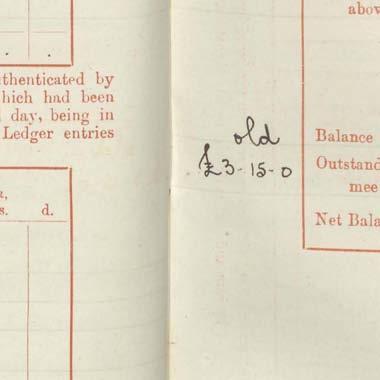 . .
uthenticated by
hich had been
day, being in
Ledger entries
s. d.
abov
old
£3-15-0
Balance
Outstand
mee
Net Bala